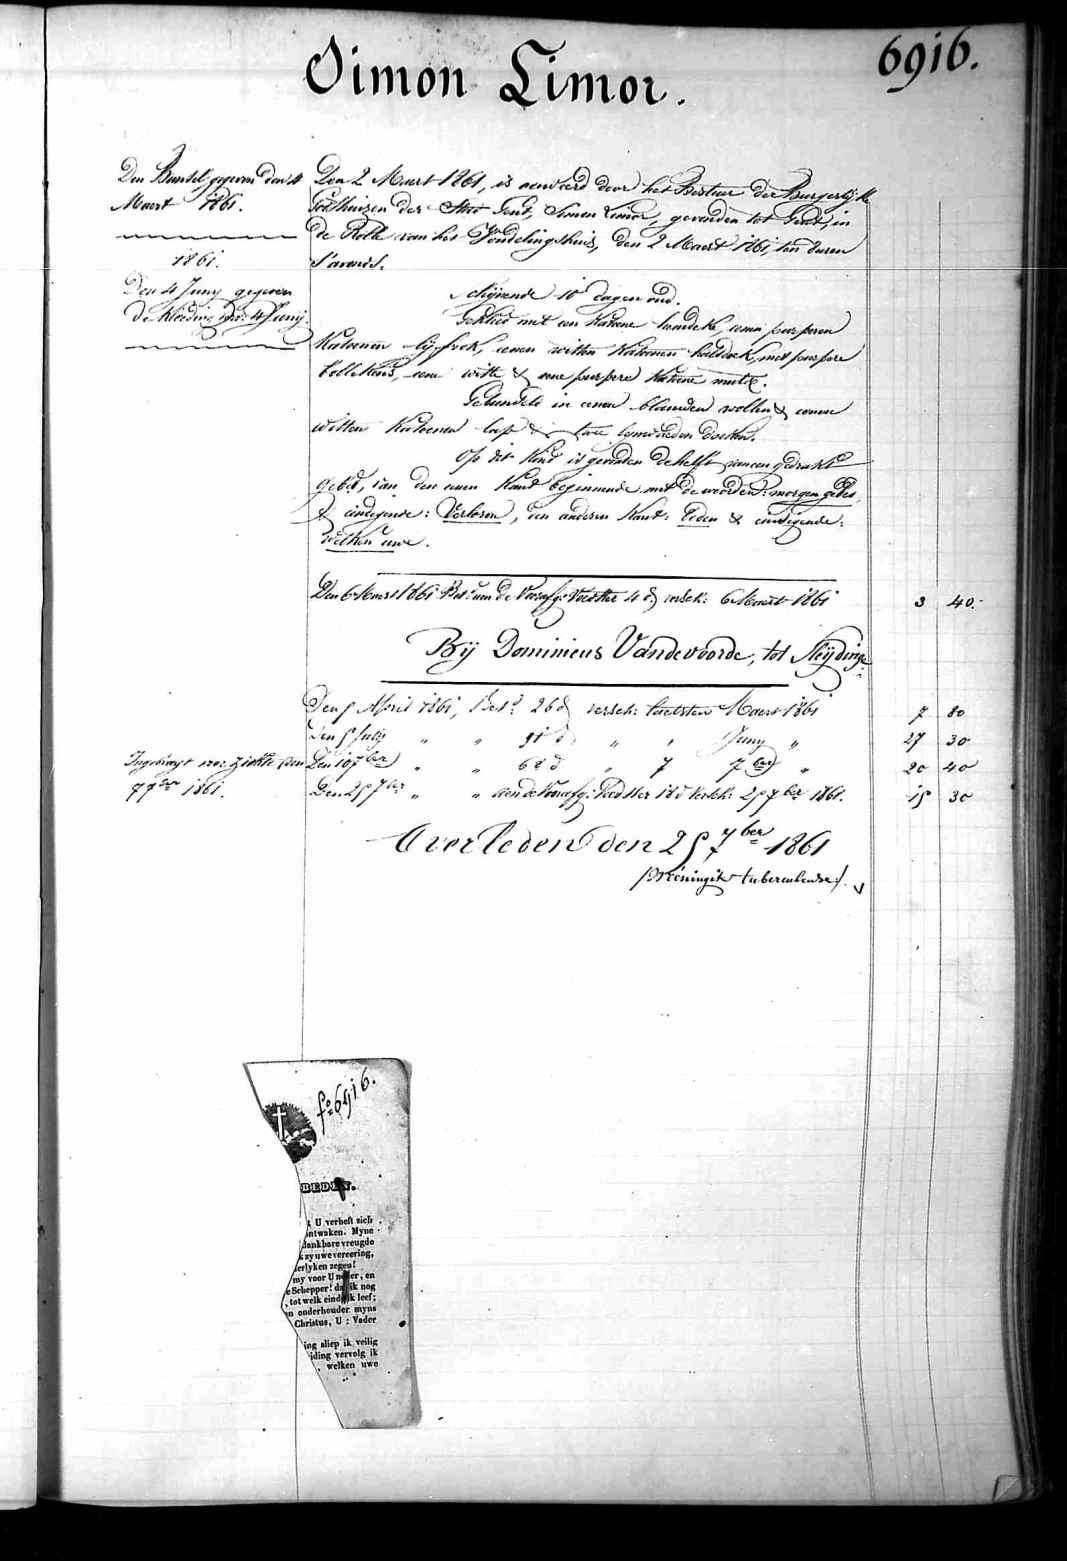 6916.
Simon Limor.
Den Bundel gegeven den 4
Maert 1861.
1861.
Den 4 Juny gegeven
De kleeding van 4 Juny.
Den 2 Maert 1861, is aenveerd door het Bestuer der Burgerlijke
Godshuizen der Stad Gent, Simon Limor, gevonden tot Gent, in
de Rolle van het Vondelingshuis, den 2 Maert 1861, ten uren
s'avonds.
schijnende 10 dagen oud.
Gekleed met een katoene hemdeke, eenen purperen
katoenen lijfrok, eenen witten katoenen halsdoek met purpere
bollekens, eene witte & eene purpere katoene muts.
Gebundeld in eenen blauwen wollen & eenen
witten katoenen lap & twee doeken.
Op dit kind is gevonden de helft van een gedrukt
gebed, van den eenen kant beginnende met de woorden: morgen gebed,
& eindigende: Verlosen, den anderen kant: beden & eindigende:
welken uwe.
Den 6 Maert 1861 Bet. aen de Voorsz. Voedster 4 d. versch: 6 Maert 1861 3 40.
Bij Dominicus Vandevoorde, tot Sleydinge.
Den 5 April 1861, Bet. 26 d versch: laetsten Maert 1861 7 80
Den 5 July " " 91 d " " Juny " 27 30
Ingebragt voor ziekte den
7 7ber 1861.
Den 10 7ber " " 68 d " 7 7ber " 20 40
Den 25 7ber " " aen de Voorsz: Voedster 18 d versch: 25 7ber 1861. 15 30
Overleden den 25 7ber 1861
/:Meningite tuberculeuse:/.
fo 6916.
BEDEN.
t U verheft zich
ontwaken. Myne
dankbare vreugde
k zy uwe vereering,
derlyken zegen!
my voor U neder, en
e Schepper! dat ik nog
, tot welk einde ik leef;
en onderhouder myns
Christus, U : Vader
ing sliep ik veilig
iding vervolg ik
, welken uwe